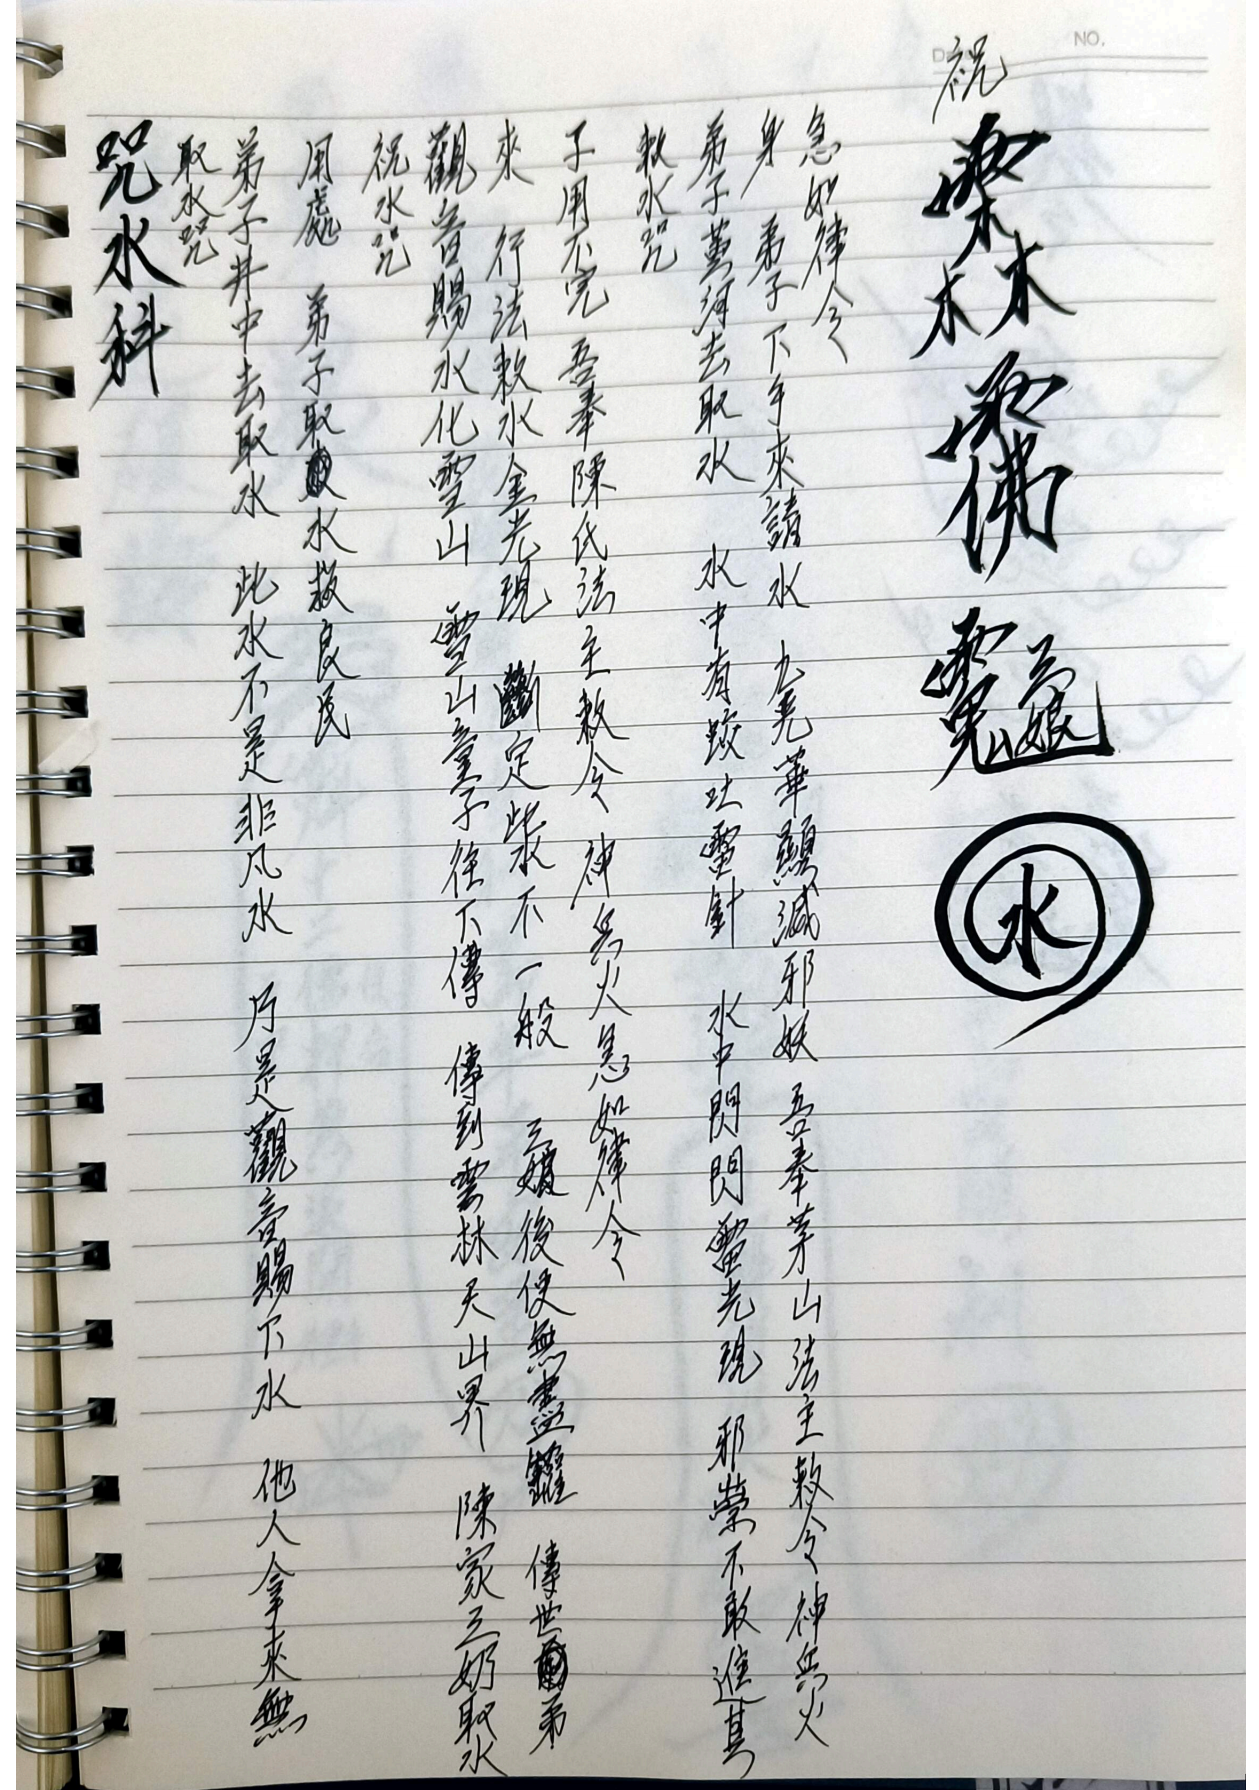 咒水科
取水咒
弟子井中去取水 此水不是非凡水 乃是觀音賜下水 他人拿來無
用處 弟子取水救良民
祝水咒
觀音賜水化雪山 雪山童子往下傳 傳到雲林天山界 陳家三奶取水
來 行法敕水金光現 斷定此水不一般 三娘後便無盡罐 傳世弟
子用不完 吾奉陳氏法主敕令 神兵火急如律令
敕水咒
弟子黃河去取水 水中有蛟吐雷針 水中閃閃雷光現 邪祟不敢進其
身 弟子下手來請水 九光華顯滅邪妖 吾奉茅山法主敕令神兵火
急如律令
祝
水
NO.